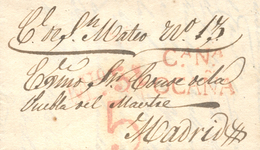 C.e de S.n Mateo N.o 17
C.A N.A
Exmo S.or Conde de la
OCAÑA
Puebla del Maestre
5
Madrid